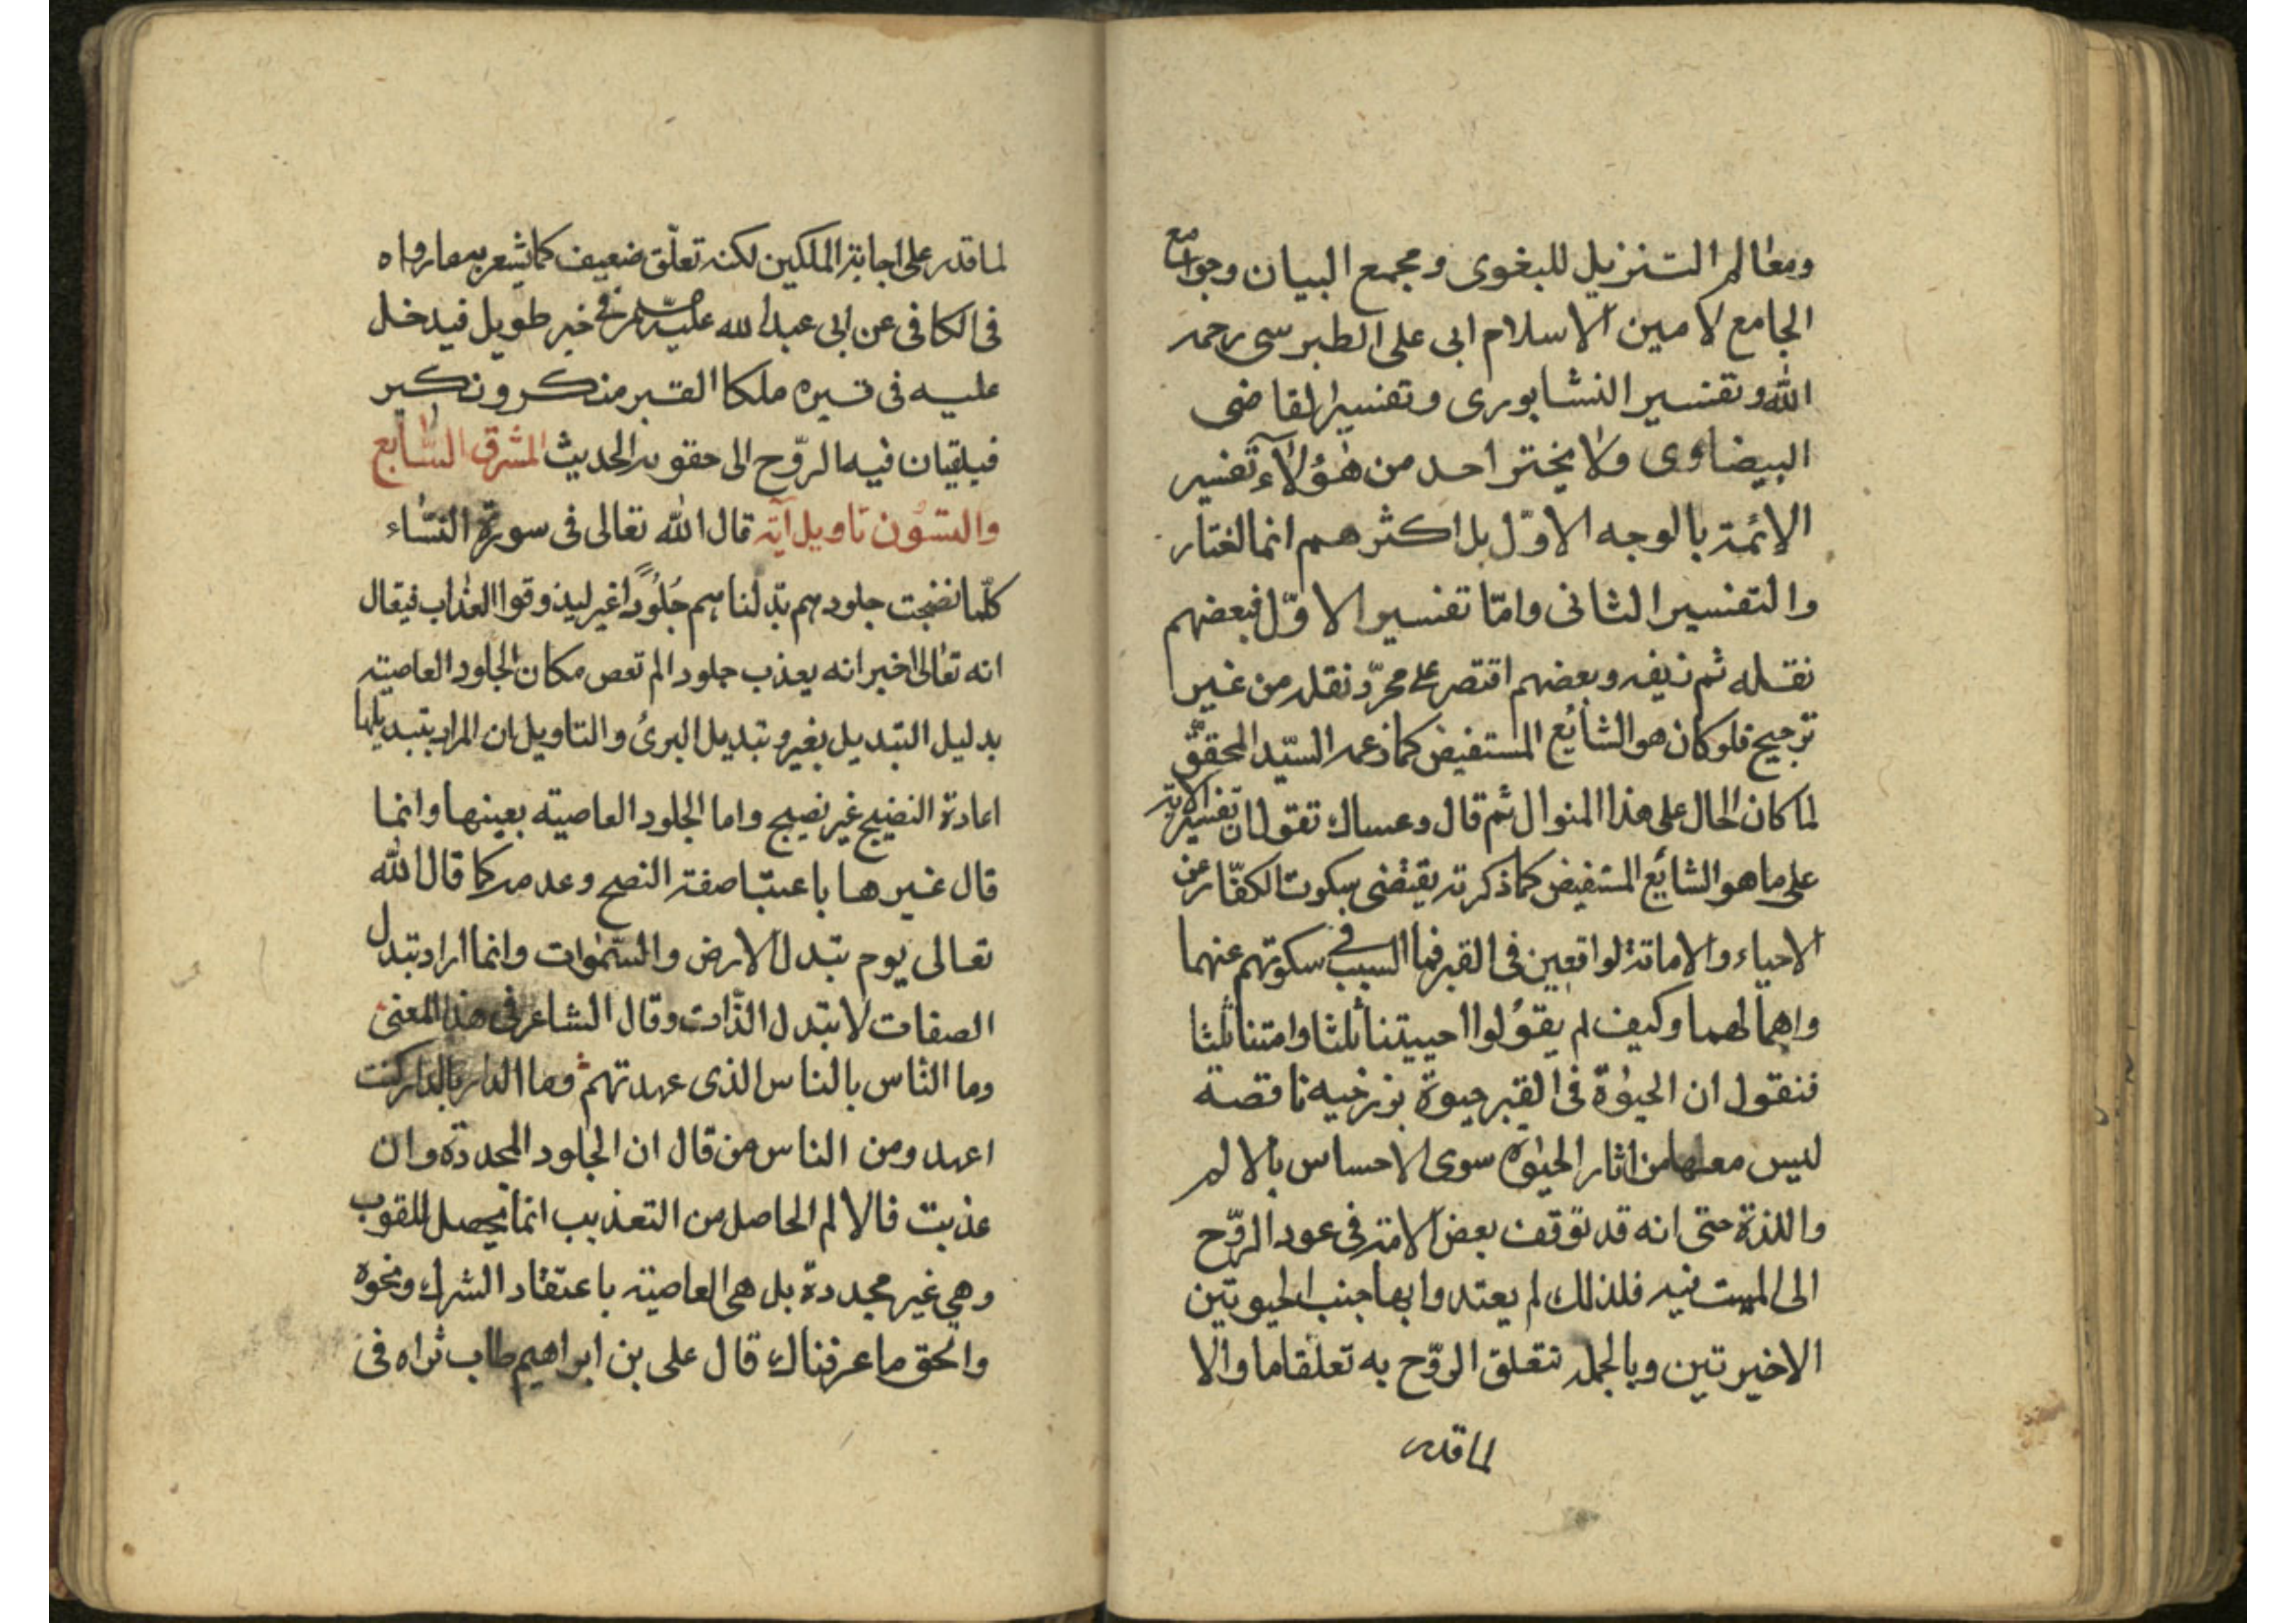 ومعالم التنزيل للبغوى ومجمع البيان وجوامع
الجامع لامين الاسلام ابى على الطبرسى رحمه
الله وتفسير النشابورى وتفسير القاضى
البيضاوى ولا يختر احد من هؤلاء تفسير
الائمة بالوجه الاوّل بل اكثرهم انما اختار
والتفسير الثانى وامّا تفسير الاوّل فبعضهم
نقله ثم زيفه وبعضهم اقتصر على مجرّد نقله من غير
ترجيح فلو كان هو الشائع المستفيض كما زعمه السيّد المحقق
لما كان الحال على هذا المنوال ثم قال وعساك تقول ان تفسير الاية
على ما هو الشائع المستفيض كما ذكرته يقتضى سكوت الكفّار عن
الاحياء والاماتة الواقعين فى القبر فما السبب فى سكوتهم عنهما
واهمالهما وكيف لم يقولوا احييتنا ثلثا وامتنا ثلثا
فنقول ان الحيوة فى القبر حيوة برزخيه ناقصة
ليس معها من اثار الحيوة سوى الاحساس بالالم
واللذة حتى انه قد توقف بعض الامة فى عود الرّوح
الى الميت فيه فلذلك لم يعتدوا بها جنب الحيوتين
الاخيرتين وبالجمله تتعلق الروّح به تعلقا ما والا
لما قدر
لما قدر على اجابة الملكين لكنه تعلّق ضعيف كما يشعر به ما رواه
فى الكافى عن ابى عبد الله عليه فى خبر طويل فيدخل
عليه فى قبره ملكا القبر منكر ونكير
فيلقيان فيه الرّوح الى حقويه الحديث المشرق السّابع
والستون تاويل آية قال الله تعالى فى سورة النسّاء
كلّما نضجت جلودهم بدّلناهم جُلُودًا غير ليذوقوا العذاب فيقال
انه تعالى اخبر انه يعذب جلودا لم تعص مكان الجلود العاصيته
بدليل التبديل بغير وتبديل البرئ والتاويل ان المراد بتبديلها
اعادة النضيج غير نضيج واما الجلود العاصيته بعينها وانما
قال غيرها باعتبا صفة النضج وعدمه كما قال الله
تعالى يوم تبدل الارض والسّموات وانما اراد تبدل
الصفات لا تبدل الذّات وقال الشاعر فى هذا المعنى
وما النّاس بالناس الذى عهدتهم وما الدار بالدار كنت
اعهد ومن الناس من قال ان الجلود المجددة وان
عذبت فالالم الحاصل من التعذيب انما يحصل للقوب
وهى غير مجددة بل هى العاصيته باعتقاد الشرك ونحوه
والحق ما عرفناك قال على بن ابراهيم طاب ثراه فى